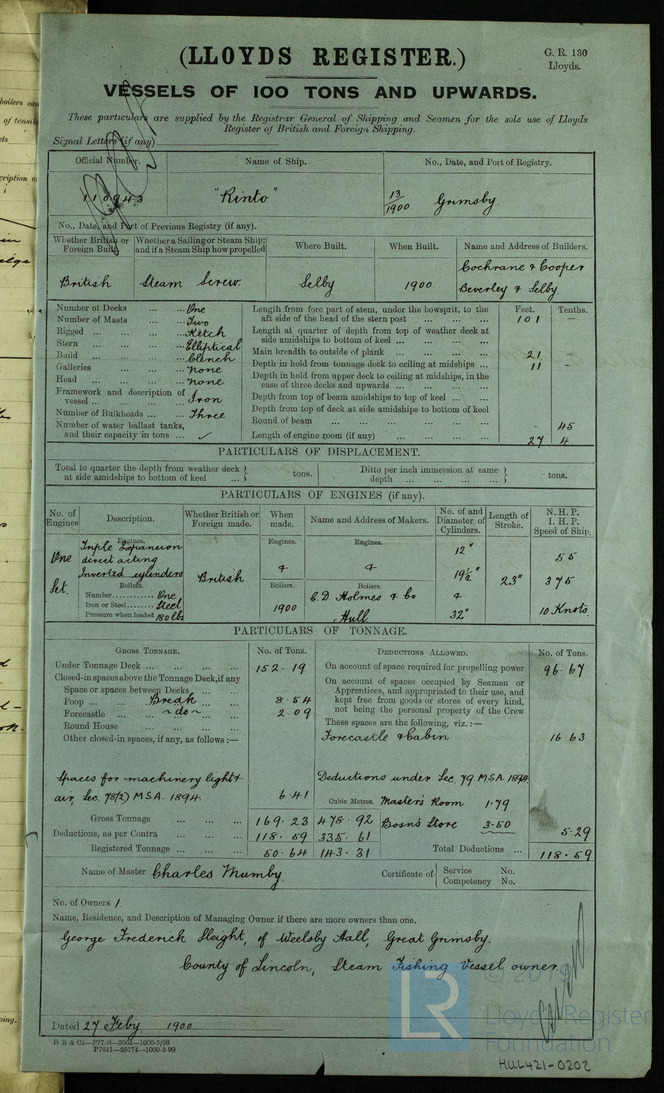 (LLOYDS REGISTER.)
G. R. 130
Lloyds.
VESSELS OF 100 TONS AND UPWARDS.
These particulars are supplied by the Registrar General of Shipping and Seamen for the sole use of Lloyds
Register of British and Foreign Shipping.
Signal Letters (if any)
Official Number. Name of Ship. No., Date, and Port of Registry.
110943 "Rinto" 13/1900 Grimsby
No., Date, and Port of Previous Registry (if any).
Whether British or Foreign Built. Whether a Sailing or Steam Ship; and if a Steam Ship how propelled Where Built. When Built. Name and Address of Builders.
British Steam Screw. Selby 1900. Cochrane & Cooper
Beverley & Selby
Feet. Tenths.
Number of Decks ... One
Number of Masts ... Two
Rigged ... Ketch
Stern ... Elliptical
Build ... Clench
Galleries ... none
Head ... none
Framework and description of vessel ... Iron
Number of Bulkheads ... Three
Number of water ballast tanks, and their capacity in tons ... ✓
Length from fore part of stem, under the bowsprit, to the aft side of the head of the stern post ... 101 –
Length at quarter of depth from top of weather deck at side amidships to bottom of keel ...
Main breadth to outside of plank ... 21 –
Depth in hold from tonnage deck to ceiling at midships ... 11 –
Depth in hold from upper deck to ceiling at midships, in the case of three decks and upwards ...
Depth from top of beam amidships to top of keel ...
Depth from top of deck at side amidships to bottom of keel
Round of beam ... - 45
Length of engine room (if any) ... 27 4
PARTICULARS OF DISPLACEMENT.
Total to quarter the depth from weather deck at side amidships to bottom of keel ... tons. Ditto per inch immersion at same depth ... tons.
PARTICULARS OF ENGINES (if any).
No. of Engines Description. Whether British or Foreign made. When made. Name and Address of Makers. No. of and Diameter of Cylinders. Length of Stroke. N. H. P. I. H. P. Speed of Ship.
Engines. Engines. Engines.
One Set. Triple Expansion
direct acting
Inverted cylinders
British
12"
19½"
32"
23"
55
375
10 Knots
Boilers. Boilers. Boilers.
Number ... One
Iron or Steel ... Steel
Pressure when loaded 180 lbs
1900
C. D. Holmes & Co
Hull
PARTICULARS OF TONNAGE.
GROSS TONNAGE. No. of Tons. DEDUCTIONS ALLOWED. No. of Tons.
Under Tonnage Deck ... 152.19
Closed-in spaces above the Tonnage Deck, if any
Space or spaces between Decks ...
Poop ... Break ... 8.54
Forecastle ... do ... 2.09
Round House ...
Other closed-in spaces, if any, as follows:—
Spaces for machinery light &
air, Sec. 78(2) M.S.A. 1894. 6.41
Cubic Metres.
Gross Tonnage ... 169.23 478.92
Deductions, as per Contra ... 118.59 335.61
Registered Tonnage ... 50.64 143.31
On account of space required for propelling power 96.67
On account of spaces occupied by Seamen or Apprentices, and appropriated to their use, and kept free from goods or stores of every kind, not being the personal property of the Crew
These spaces are the following, viz.:—
Forecastle & Cabin 16.63
Deductions under Sec. 79. M.S.A. 1894
Master's Room 1.79
Bosn's Store 3.50
5.29
Total Deductions ... 118.59
Name of Master Charles Mumby.
Certificate of Service No.
Competency No.
No. of Owners 1.
Name, Residence, and Description of Managing Owner if there are more owners than one.
George Frederick Sleight, of Weelsby Hall, Great Grimsby.
County of Lincoln, Steam Fishing Vessel owner.
Dated 27 Feby. 1900.
LR
© 2019
Lloyd's Register
Foundation
HUL421-0202